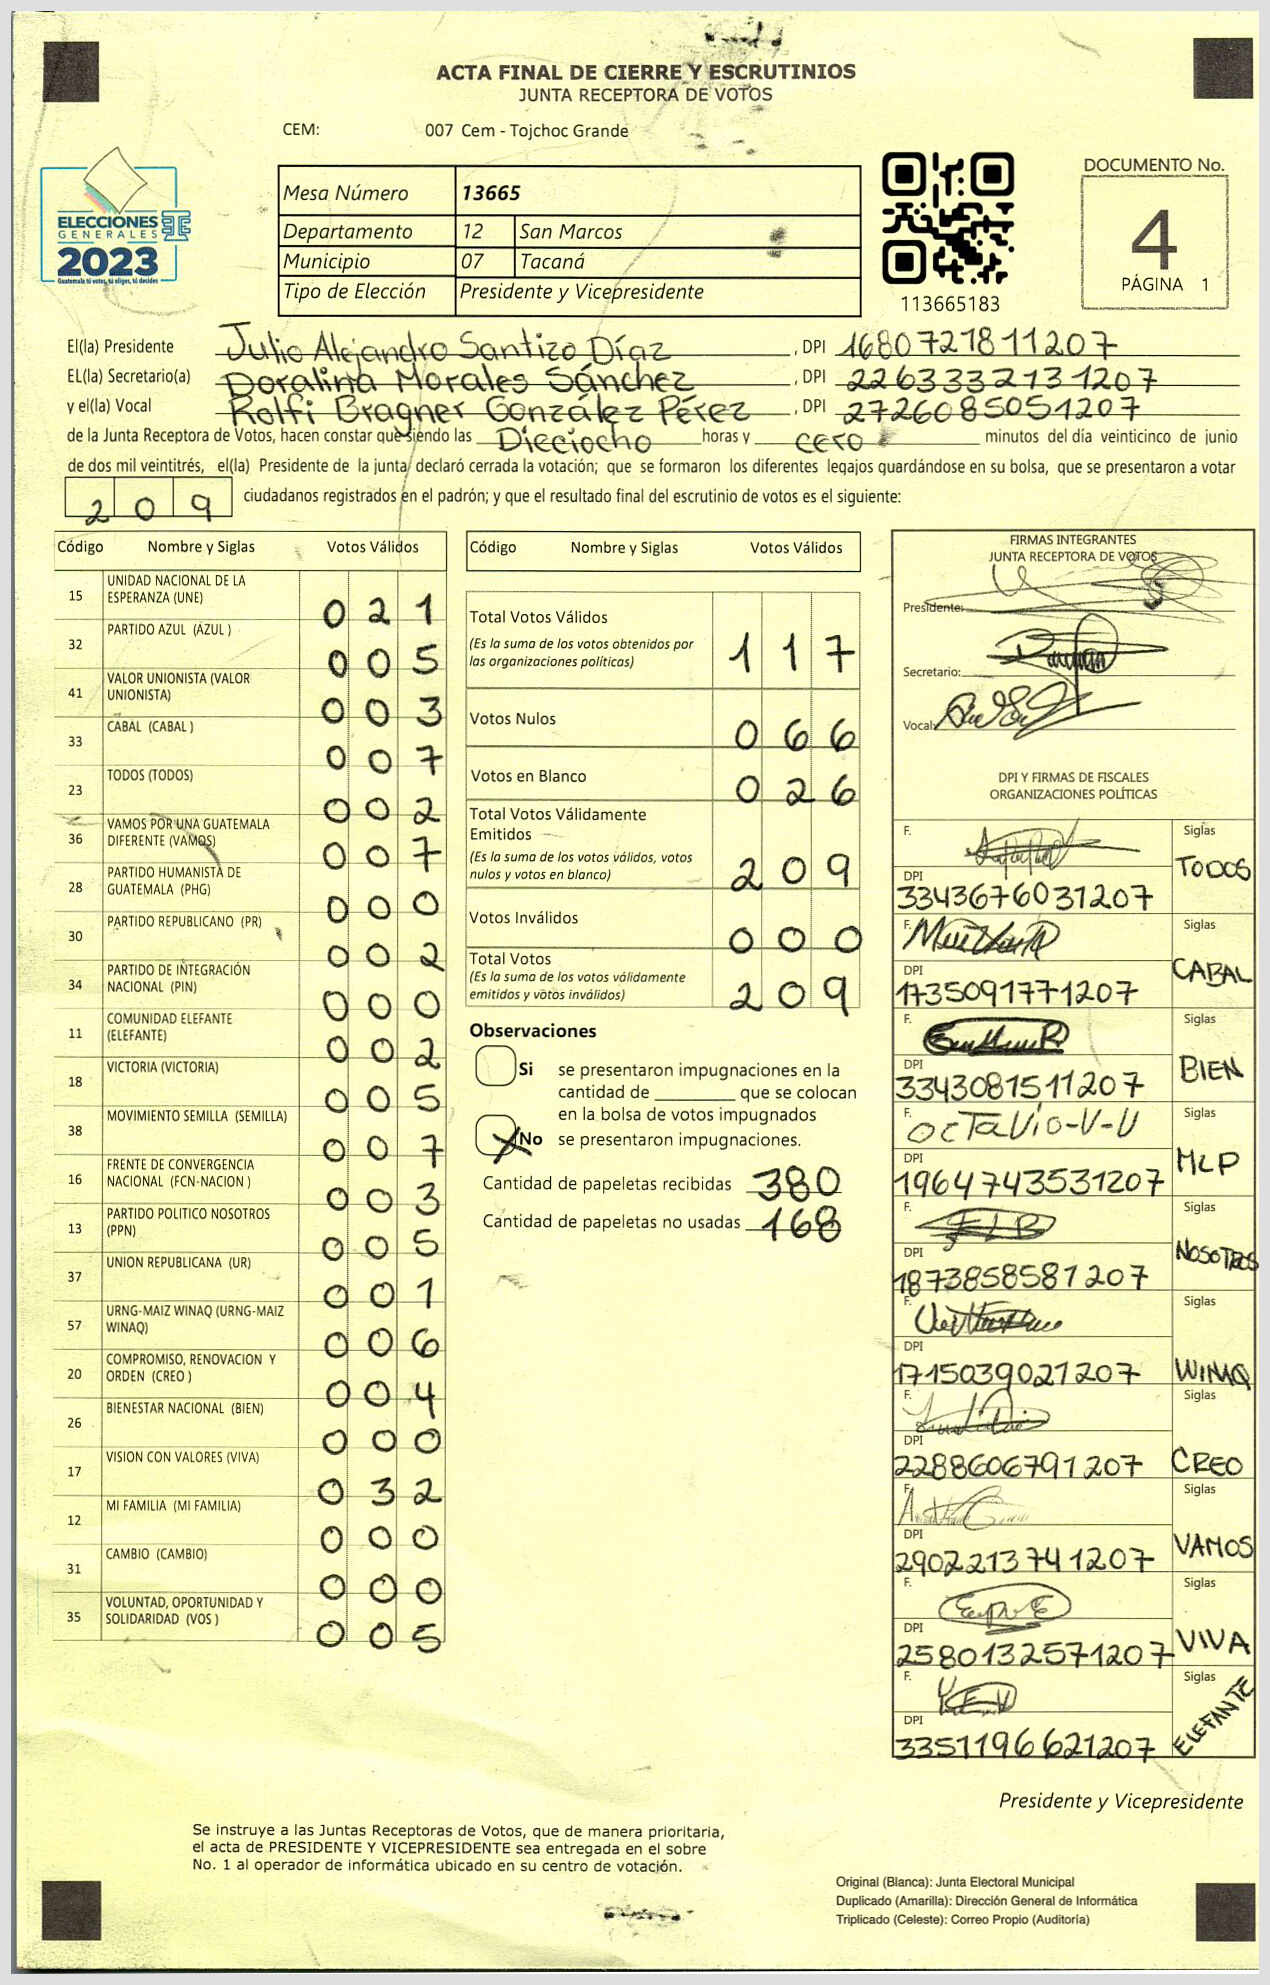 ACTA FINAL DE CIERRE Y ESCRUTINIOS
JUNTA RECEPTORA DE VOTOS
CEM: 007 Cem - Tojchoc Grande
ELECCIONES
GENERALES
2023
Guatemala tú votas, tú eliges, tú decides
Mesa Número 13665
Departamento 12 San Marcos
Municipio 07 Tacaná
Tipo de Elección Presidente y Vicepresidente
113665183
DOCUMENTO No.
4
PÁGINA 1
El(la) Presidente Julio Alejandro Santizo Díaz , DPI 1680721811207
EL(la) Secretario(a) Doralina Morales Sánchez , DPI 2263332131207
y el(la) Vocal Rolfi Bragner González Pérez , DPI 2726085051207
de la Junta Receptora de Votos, hacen constar que siendo las Dieciocho horas y cero minutos del día veinticinco de junio
de dos mil veintitrés, el(la) Presidente de la junta declaró cerrada la votación; que se formaron los diferentes legajos guardándose en su bolsa, que se presentaron a votar
209 ciudadanos registrados en el padrón; y que el resultado final del escrutinio de votos es el siguiente:
Código Nombre y Siglas Votos Válidos
15 UNIDAD NACIONAL DE LA ESPERANZA (UNE) 021
32 PARTIDO AZUL (AZUL ) 005
41 VALOR UNIONISTA (VALOR UNIONISTA) 003
33 CABAL (CABAL ) 007
23 TODOS (TODOS) 002
36 VAMOS POR UNA GUATEMALA DIFERENTE (VAMOS) 007
28 PARTIDO HUMANISTA DE GUATEMALA (PHG) 000
30 PARTIDO REPUBLICANO (PR) 002
34 PARTIDO DE INTEGRACIÓN NACIONAL (PIN) 000
11 COMUNIDAD ELEFANTE (ELEFANTE) 002
18 VICTORIA (VICTORIA) 005
38 MOVIMIENTO SEMILLA (SEMILLA) 007
16 FRENTE DE CONVERGENCIA NACIONAL (FCN-NACION ) 003
13 PARTIDO POLITICO NOSOTROS (PPN) 005
37 UNION REPUBLICANA (UR) 001
57 URNG-MAIZ WINAQ (URNG-MAIZ WINAQ) 006
20 COMPROMISO, RENOVACION Y ORDEN (CREO ) 004
26 BIENESTAR NACIONAL (BIEN) 000
17 VISION CON VALORES (VIVA) 032
12 MI FAMILIA (MI FAMILIA) 000
31 CAMBIO (CAMBIO) 000
35 VOLUNTAD, OPORTUNIDAD Y SOLIDARIDAD (VOS ) 005
Código Nombre y Siglas Votos Válidos
Total Votos Válidos 117
(Es la suma de los votos obtenidos por
las organizaciones políticas)
Votos Nulos 066
Votos en Blanco 026
Total Votos Válidamente
Emitidos
(Es la suma de los votos válidos, votos
nulos y votos en blanco) 209
Votos Inválidos 000
Total Votos
(Es la suma de los votos válidamente
emitidos y votos inválidos) 209
Observaciones
Si se presentaron impugnaciones en la
cantidad de ________ que se colocan
en la bolsa de votos impugnados
X No se presentaron impugnaciones.
Cantidad de papeletas recibidas 380
Cantidad de papeletas no usadas 168
FIRMAS INTEGRANTES
JUNTA RECEPTORA DE VOTOS
Presidente:
Secretario:
Vocal:
DPI Y FIRMAS DE FISCALES
ORGANIZACIONES POLÍTICAS
F. Siglas TODOS
DPI 3343676031207
F. Siglas CABAL
DPI 1735091771207
F. Siglas BIEN
DPI 3343081511207
F. OCTAVIO-V-U Siglas MLP
DPI 1964743531207
F. Siglas NOSOTROS
DPI 1873858581207
F. Siglas WINAQ
DPI 1715039021207
F. Siglas CREO
DPI 2288606791207
F. Siglas VAMOS
DPI 2902213741207
F. Siglas VIVA
DPI 2580132571207
F. Siglas ELEFANTE
DPI 3351196621207
Presidente y Vicepresidente
Se instruye a las Juntas Receptoras de Votos, que de manera prioritaria,
el acta de PRESIDENTE Y VICEPRESIDENTE sea entregada en el sobre
No. 1 al operador de informática ubicado en su centro de votación.
Original (Blanca): Junta Electoral Municipal
Duplicado (Amarilla): Dirección General de Informática
Triplicado (Celeste): Correo Propio (Auditoría)